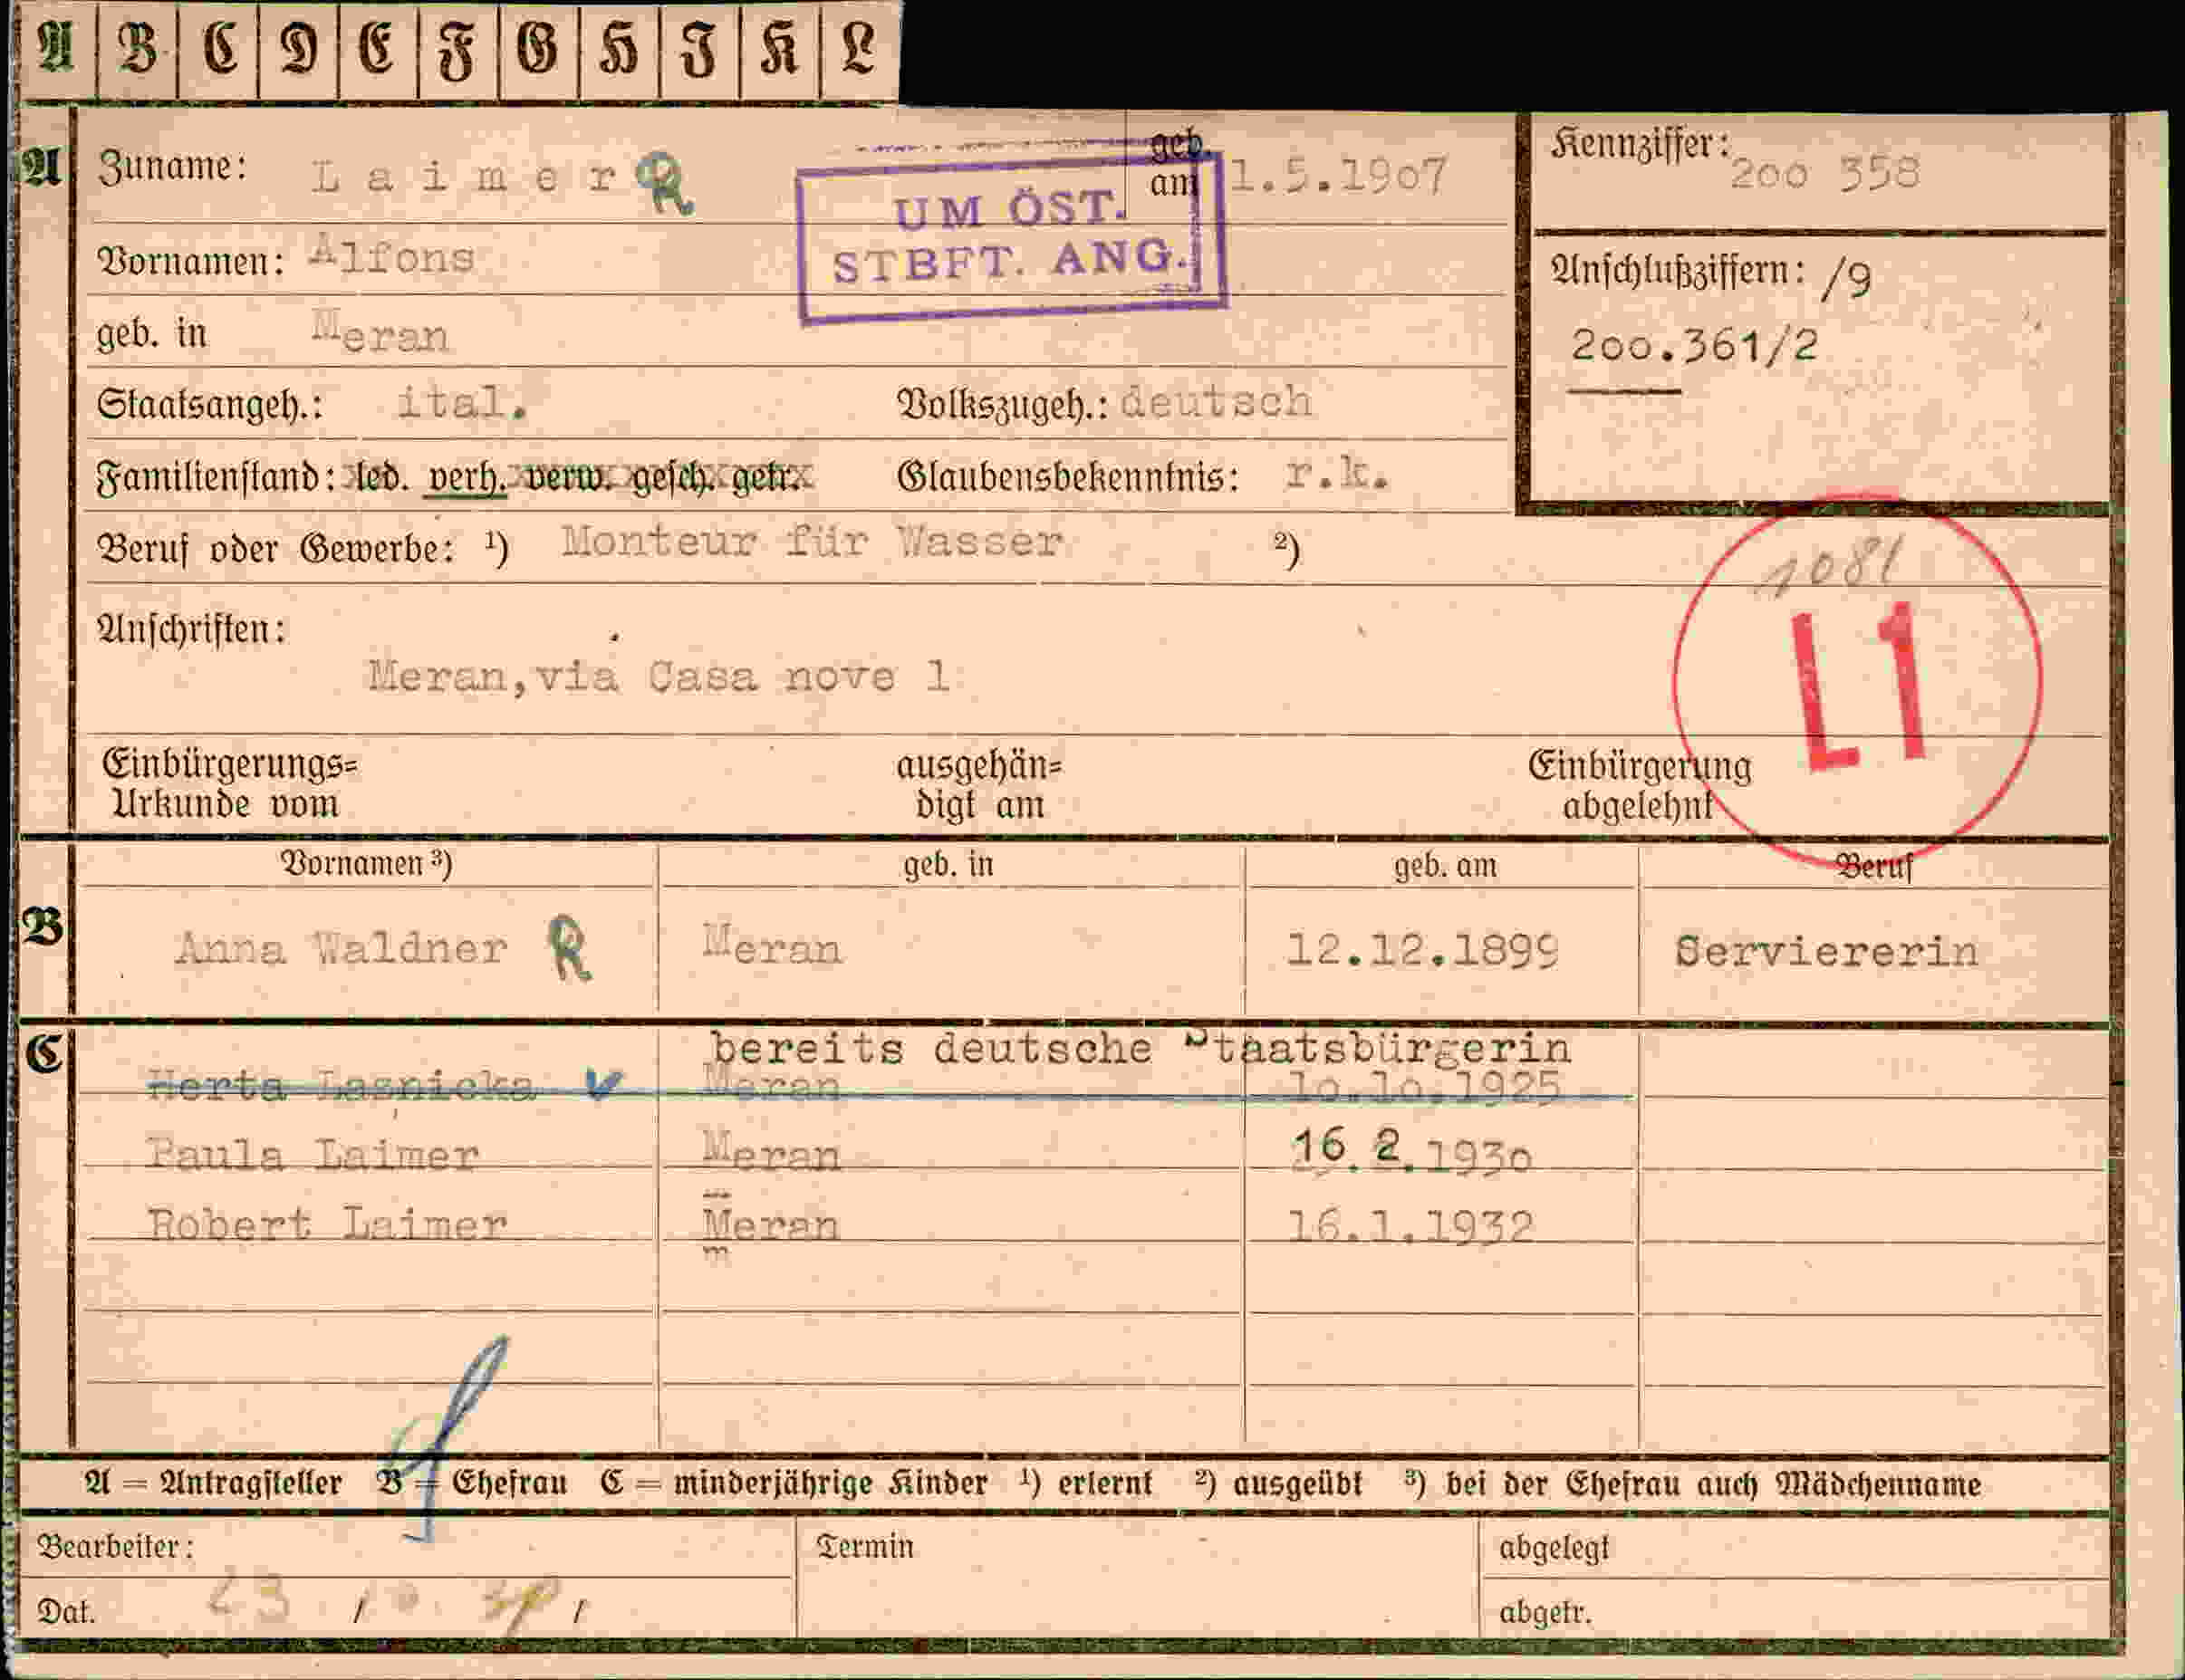 A B C D E F G H I K L
A Zuname: Laimer R geb. am 1.5.1907 Kennziffer: 200 358
UM ÖST.
STBFT. ANG.
Vornamen: Alfons Anschlußziffern: /9
200.361/2
geb. in Meran
Staatsangeh.: ital. Volkszugeh.: deutsch
Familienstand: led. verh. verw. gesch. getr. Glaubensbekenntnis: r.k.
Beruf oder Gewerbe: ¹) Monteur für Wasser ²)
1081
L1
Anschriften:
Meran,via Casa nove 1
Einbürgerungs= ausgehän= Einbürgerung
Urkunde vom digt am abgelehnt
Vornamen ³) geb. in geb. am Beruf
B Anna Waldner R Meran 12.12.1899 Serviererin
C bereits deutsche Staatsbürgerin
Herta Lasnicka Meran 10.10.1925
Paula Laimer Meran 16.2.1930
Robert Laimer Meran 16.1.1932
A = Antragsteller B = Ehefrau C = minderjährige Kinder ¹) erlernt ²) ausgeübt ³) bei der Ehefrau auch Mädchenname
Bearbeiter: Termin abgelegt
Dat. 23 / / abgetr.